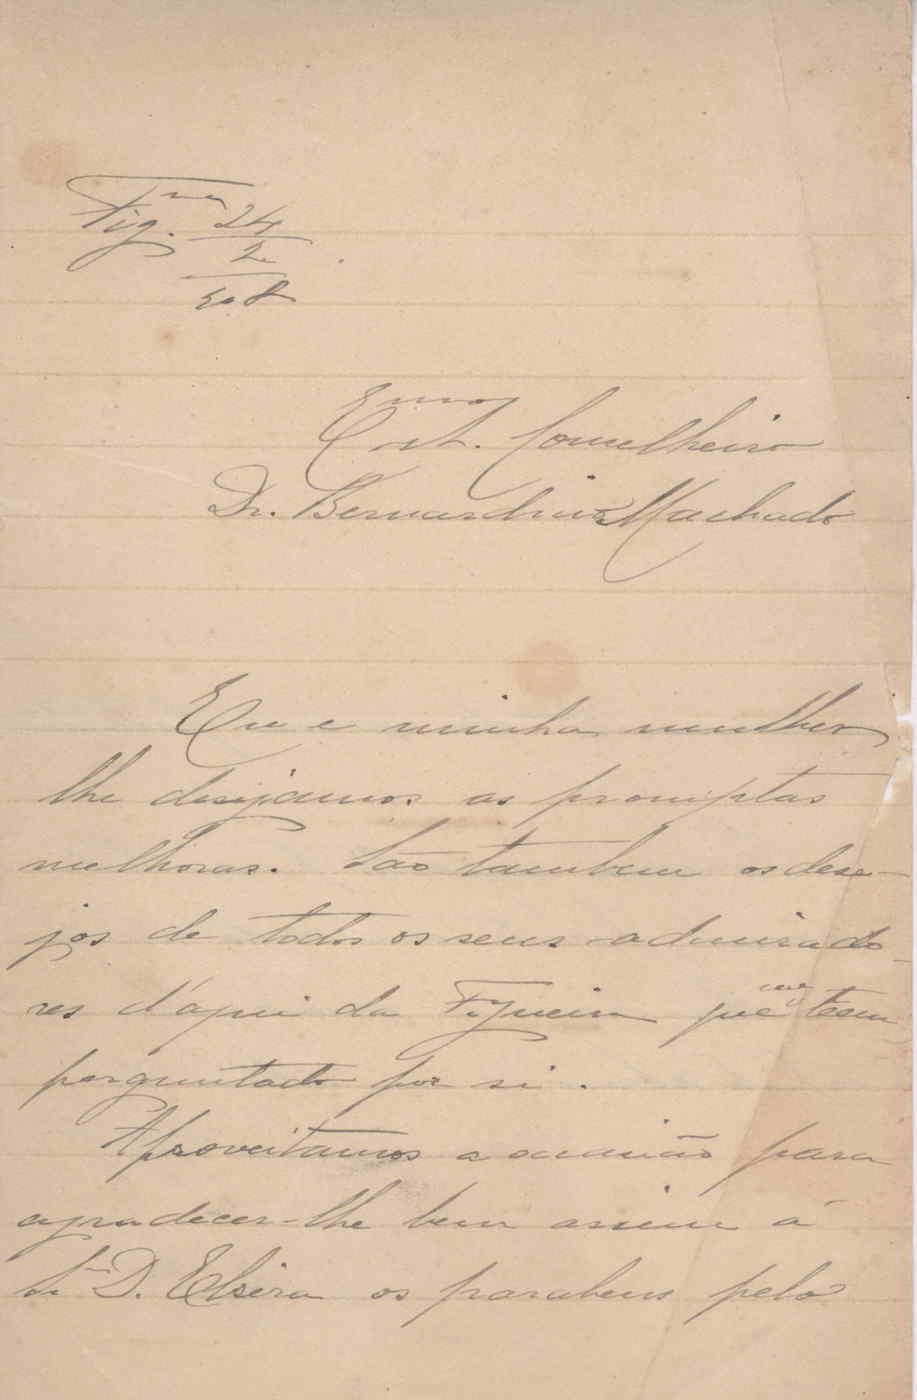 Fig.ra 24
2
908
Exmo Sr. Conselheiro
Dr. Bernardino Machado
Eu e minha mulher
lhe desejamos as promptas
melhoras. São tambem os dese-
jos de todos os seus admirado-
res d'aqui da Figueira que me teem
perguntado por si.
Aproveitamos a occasião para
agradecer-lhe bem assim á
Sra D. Elzira os parabens pelo